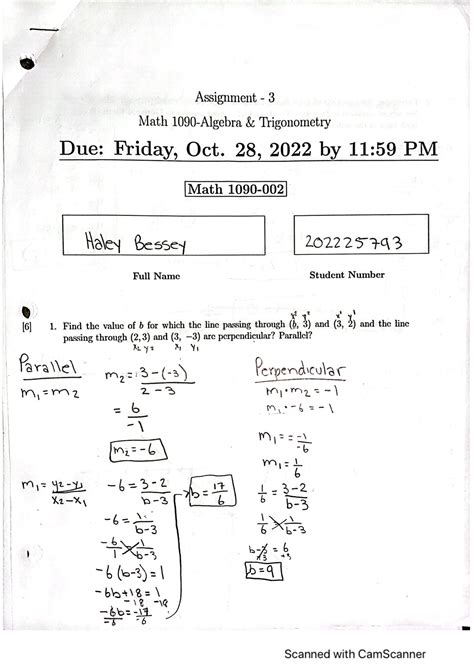 Assignment - 3
Math 1090-Algebra & Trigonometry
Due: Friday, Oct. 28, 2022 by 11:59 PM
Math 1090-002
Haley Bessey
202225793
Full Name
Student Number
x² y² x¹ y¹
[6] 1. Find the value of b for which the line passing through (b, 3) and (3, 2) and the line
passing through (2,3) and (3, −3) are perpendicular? Parallel?
x₂ y₂ x₁ y₁
Parallel
m₁=m₂
m₂=3-(-3)
2-3
= 6
-1
m₂=-6
m₁=y₂-y₁
x₂-x₁
-6=3-2
b-3
-6=1
b-3
-6 1
1 b-3
-6(b-3)=1
-6b+18=1
-18 -18
-6b=-17
-6 -6
b=17
6
Perpendicular
m₁·m₂=-1
m₁·-6=-1
m₁=-1
-6
m₁=1
6
1=3-2
6 b-3
1 1
6 b-3
b-3=6
+3 +3
b=9
Scanned with CamScanner